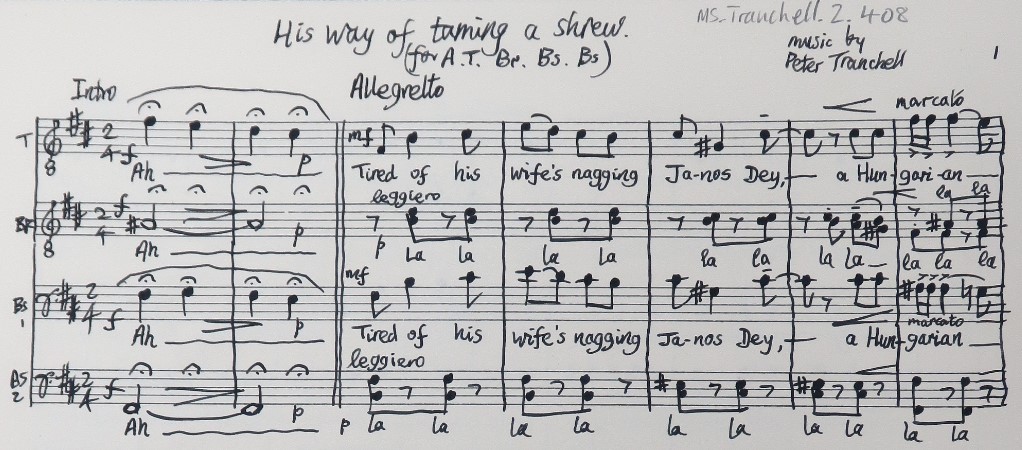 MS. Tranchell. 2. 408
His way of taming a shrew.
(for A.T. Br. Bs. Bs)
music by
Peter Tranchell
1
Intro
Allegretto
marcato
T
8
2
4
f
p
mf
Ah
Tired of his wife's nagging Ja-nos Dey, a Hun-gari-an
leggiero
la la
Br
8
2
4
f
p
p
Ah
La La la La la la la La la la la
Bs
1
2
4
f
p
mf
marcato
Ah
Tired of his wife's nagging Ja-nos Dey, a Hun-garian
leggiero
Bs
2
2
4
f
p
p
Ah
La La La La La La La La La La